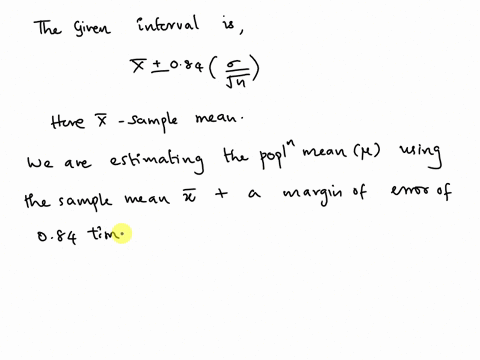 The given interval is,
x̄ ± 0.84 (σ/√n)
Here x̄ - sample mean.
We are estimating the poplⁿ mean (μ) using
the sample mean x̄ + a margin of error of
0.84 tim